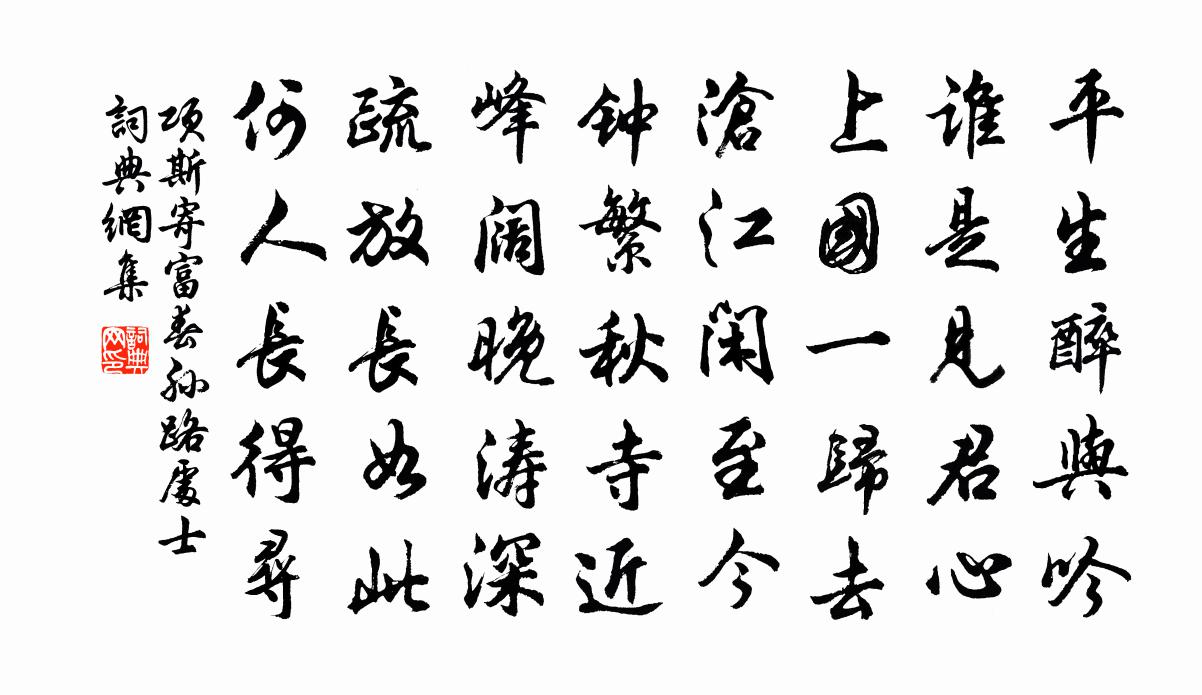 平生醉與吟
谁是見君心
上國一歸去
滄江闲至今
钟繁秋寺近
峰阔晚涛深
疏放長如此
何人長得尋
項斯寄富春孙路處士
詞典網集
詞典网印